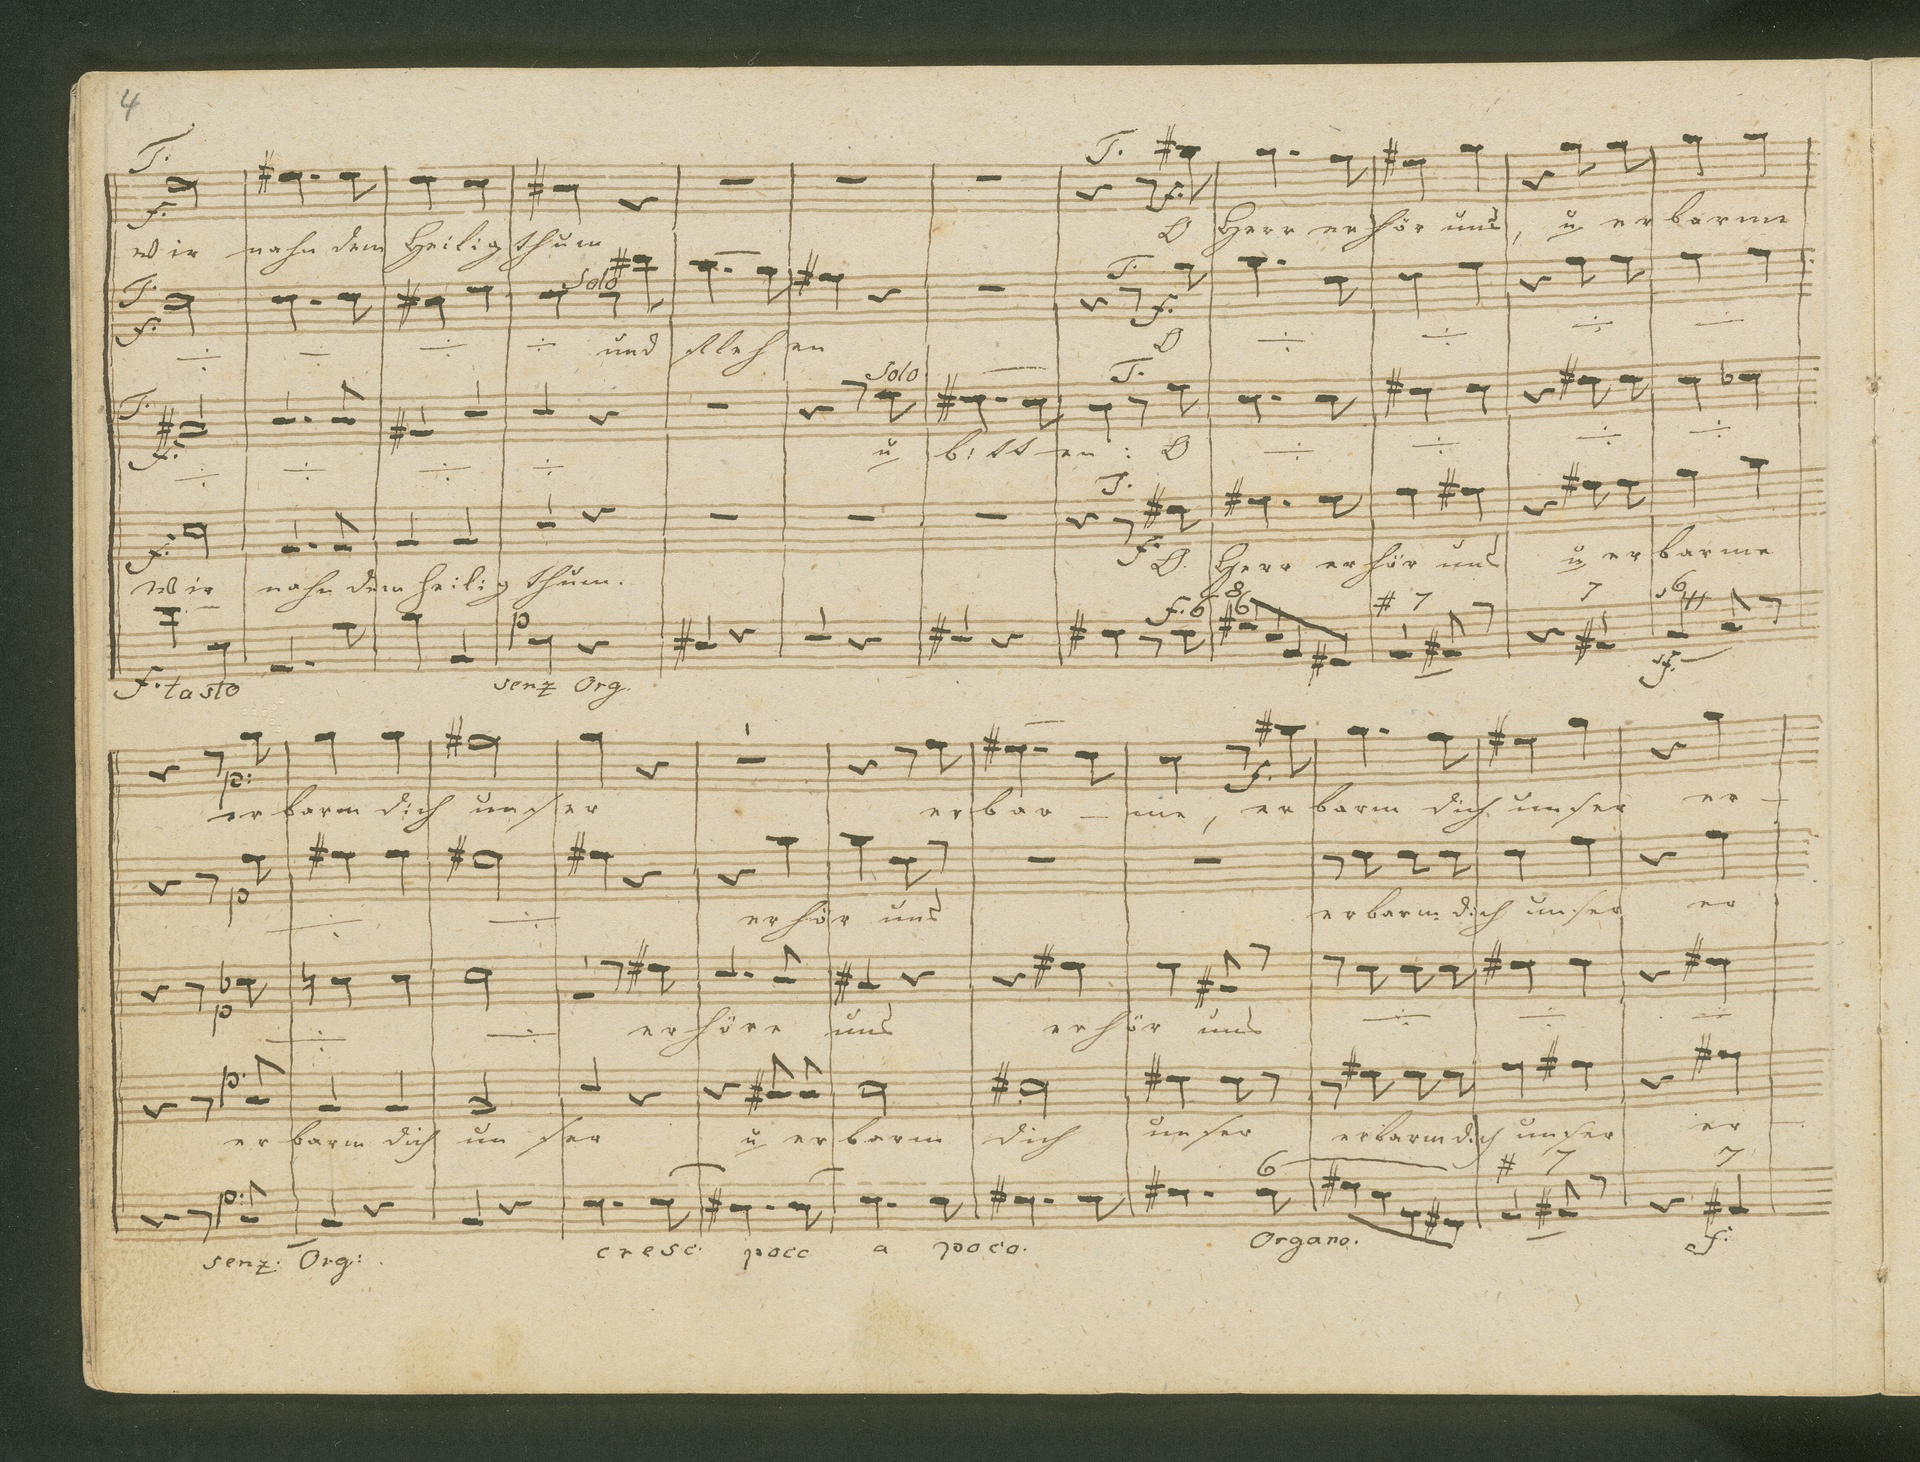 4
T. T.
f. f.
Wir nahn dem Heiligthum O Herr erhör uns, u erbarme
T. Solo T.
f. f.
÷ ÷ ÷ ÷ und flehen O ÷ ÷ ÷ ÷
T. Solo T.
f.
÷ ÷ ÷ ÷ u bitten : O ÷ ÷ ÷ ÷
T.
f. f.
Wir nahn dem heiligthum. O. Herr erhör uns u erbarme
p f. 6 8 6 # 7 7 6
f. tasto senz Org. sf.
p: f.
erbarm dich unser erbar - me, erbarm dich unser er -
p
÷ ÷ erhör uns erbarm dich unser er
p
÷ ÷ erhöre uns erhör uns ÷ ÷ ÷
p.
erbarm dich unser u erbarm dich unser erbarm dich unser er -
p: 6 # 7 7
senz: Org: cresc. poco a poco. Organo. sf: